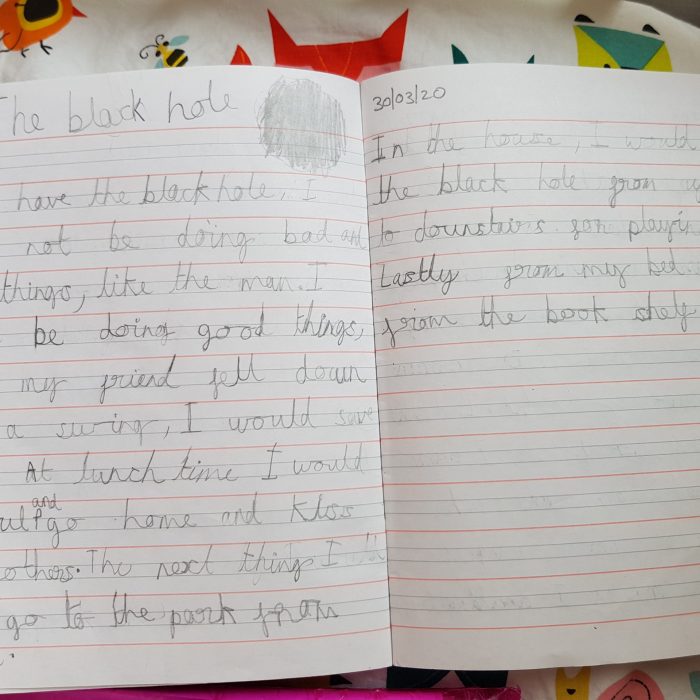 The black hole
have the black hole, I
not be doing bad and
things, like the man. I
be doing good things,
my friend fell down
a swing, I would save
At lunch time I would
and
go home and kiss
others. The next thing I'll
go to the park from
30/03/20
In the house, I would
the black hole from
to downstairs for playin
Lastly from my bed
from the book shelf